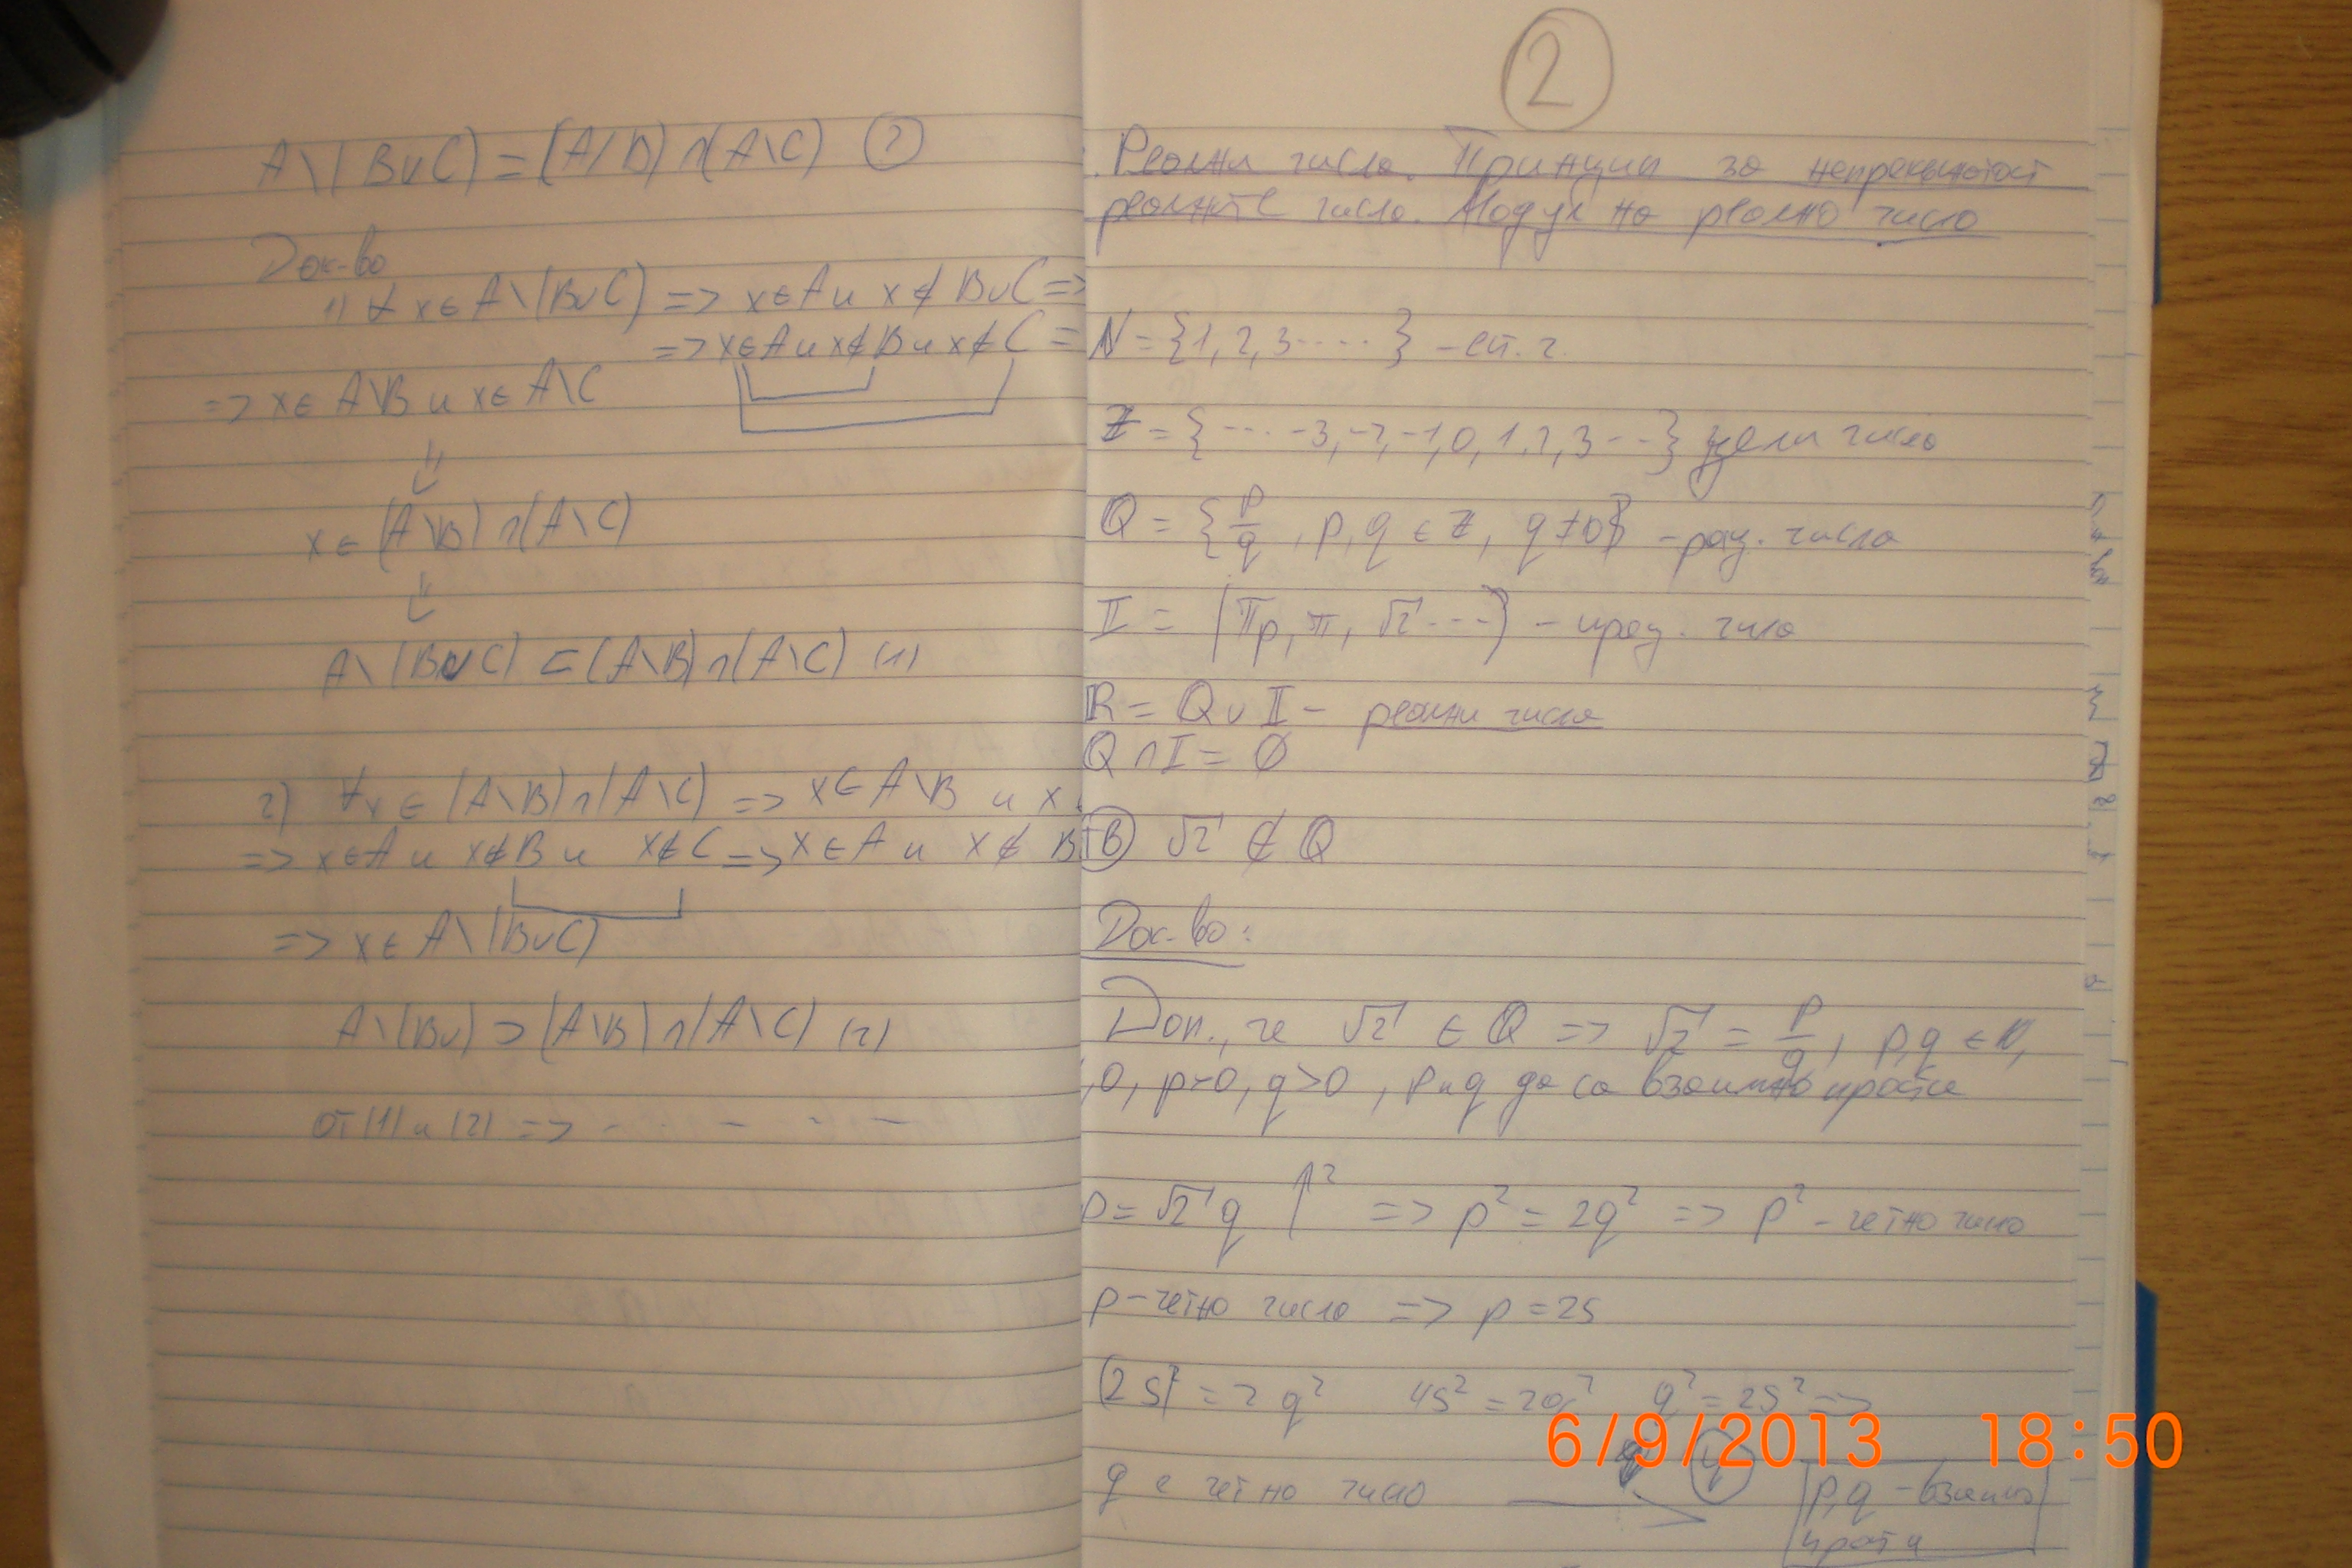 A \ (B∪C) = (A/B) ∩ (A\C) ?
Док-во
1) ∀ x ∈ A \ (B∪C) => x ∈ A и x ∉ B∪C =>
=> x ∈ A и x ∉ B и x ∉ C =
=> x ∈ A\B и x ∈ A\C
x ∈ (A\B) ∩ (A\C)
A \ (B∪C) ⊂ (A\B) ∩ (A\C) (1)
2) ∀x ∈ (A\B) ∩ (A\C) => x ∈ A\B и x
=> x ∈ A и x ∉ B и x ∉ C => x ∈ A и x ∉ B
=> x ∈ A \ (B∪C)
A \ (B∪) ⊃ (A\B) ∩ (A\C) (2)
от (1) и (2) => - - - - -
2
Реални числа. Принцип за непрекъснатост
реалните числа. Модул на реално число
N = {1, 2, 3 .....} - ест. ч.
Z = {.... -3, -2, -1, 0, 1, 2, 3 ...} цели числа
Q = {p/q, p, q ∈ Z, q ≠ 0} - рац. числа
I = {πp, π, √2 ...} - ирац. числа
R = Q ∪ I - реални числа
Q ∩ I = ∅
Тв √2 ∉ Q
Док-во:
Доп., че √2 ∈ Q => √2 = p/q, p, q ∈ N,
,0, p>0, q>0, p и q да са взаимно прости
p = √2 q ↑² => p² = 2q² => p² - четно число
p - четно число => p = 2s
(2s)² = 2q² 4s² = 2q² q² = 2s² =>
6/9/2013 18:50
q е четно число
p, q - взаимно
прости